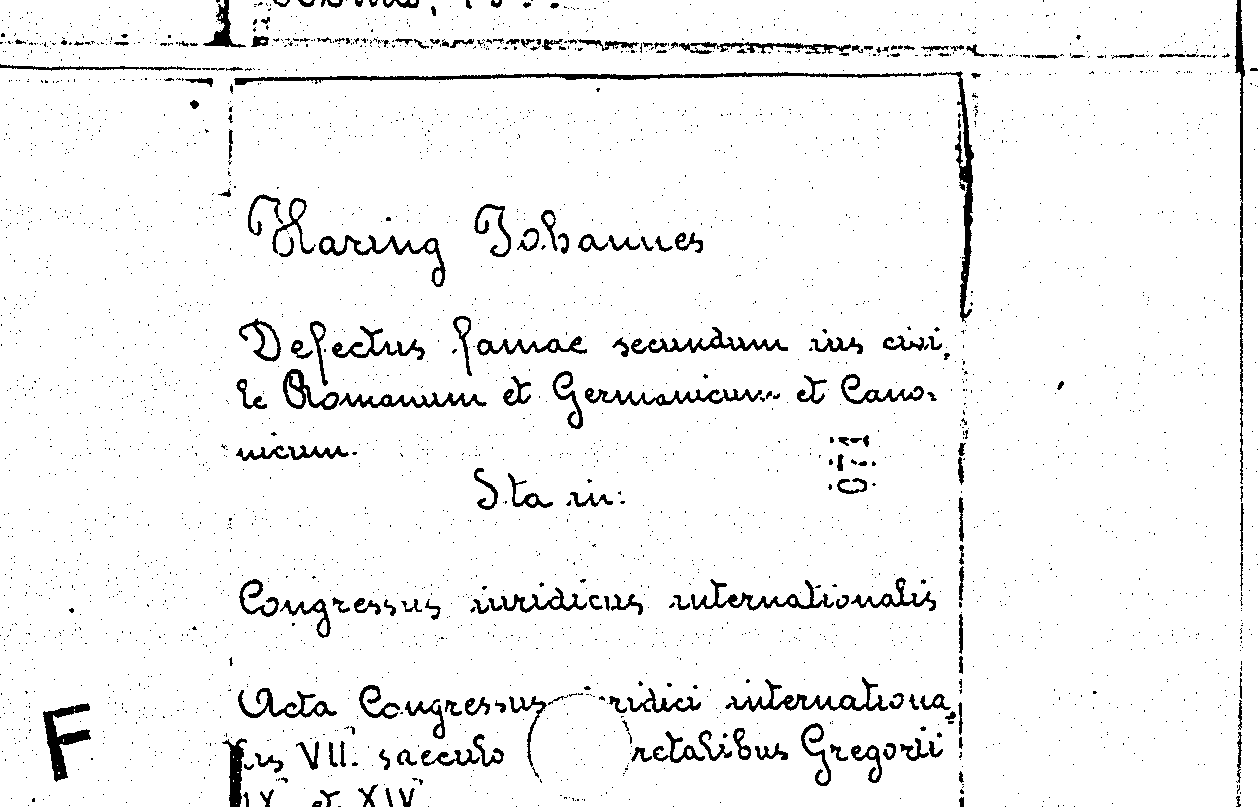 Haring Johannes
Defectus famae secundum ius civi,
le Romanum et Germanicum et Cano-
nicum.
Sta in:
Congressus iuridicus internationalis
Acta Congressus iuridici internationa,
lis VII. saeculo retalibus Gregorii
IX et XIV
F